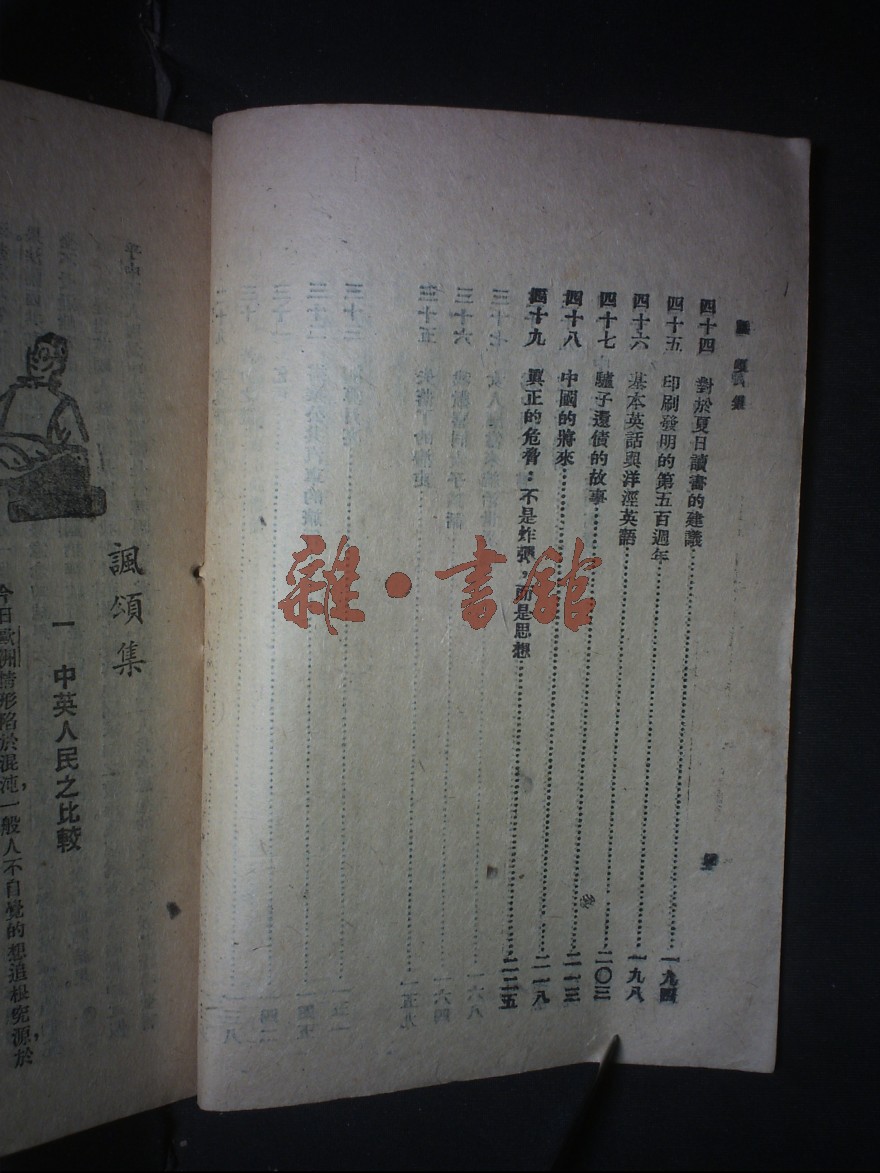 諷頌集
四十四 對於夏日讀書的建議……一九四
四十五 印刷發明的第五百週年……一九八
四十六 基本英語與洋涇英語……二〇三
四十七 驢子還債的故事……二一三
四十八 中國的將來……二一八
四十九 眞正的危脅：不是炸彈，而是思想……二二五
雜·書館
諷頌集
一 中英人民之比較
今日歐洲情形陷於混沌，一般人不自覺的想追根究源，於